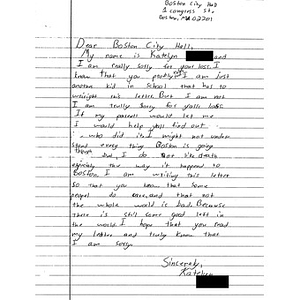 Boston City Hall
1 congress st.
Boston, MA 02201
Dear Boston City Hall,
My name is Katelyn and
I am really sorry for your loss. I
know that you probly think I am just
another kid in school that has to
write this letter. But I am not
I am trully sorry for yalls loss
If my parents would let me
I would help yall find out
who did it. I might not under
stand every thing Boston is going
through but, I do not like death
especially the way it happend to
Boston. I am writing this letter
so that you know that some
peopel do care, and that not
the whole world is bad. Because
there is still some good left in
the world. I hope that you read
my letter and truely know that
I am sorry.
Sincerely,
Katelyn